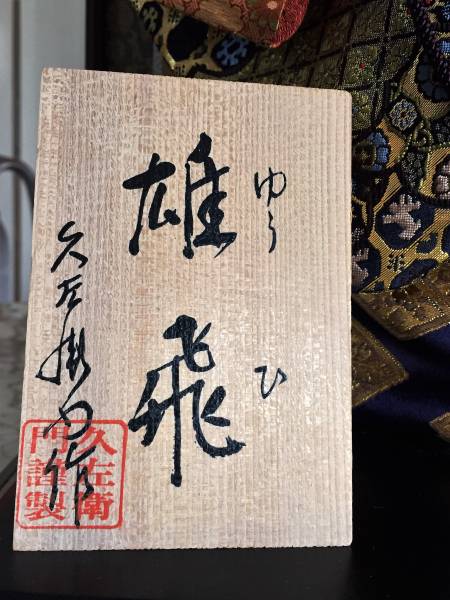 雄飛
ゆうひ
久左衛門作
久左衛
門謹製